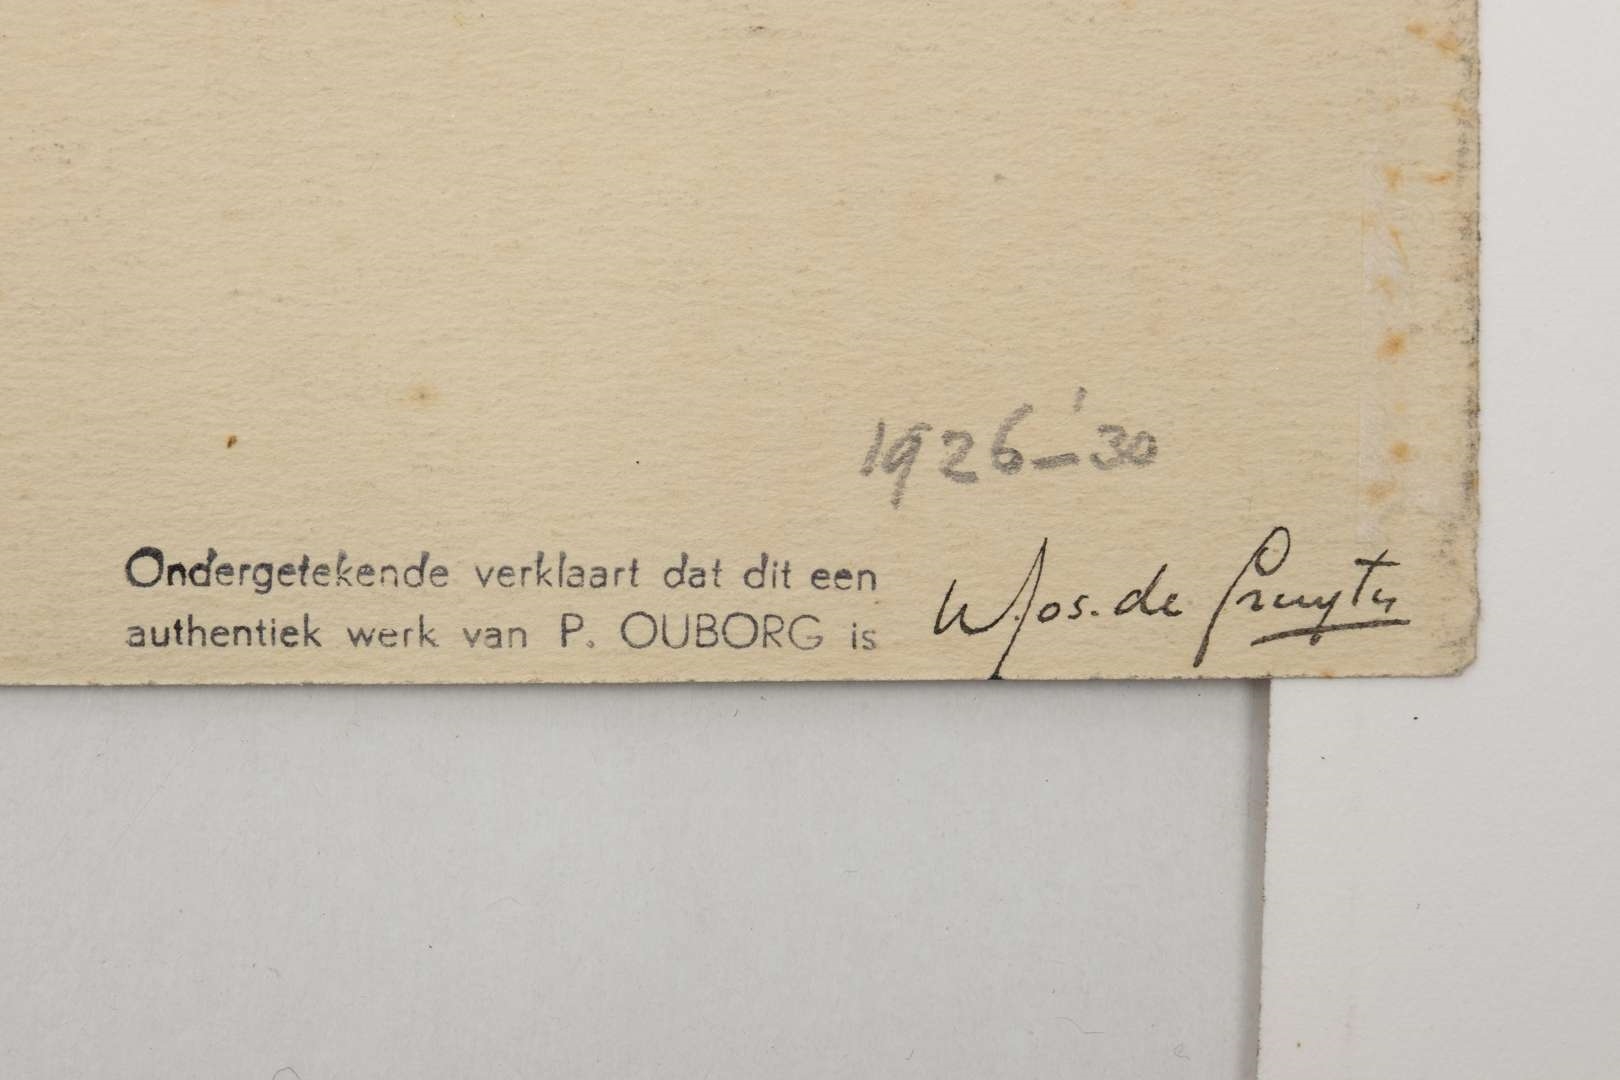 1926-'30
Ondergetekende verklaart dat dit een
authentiek werk van P. OUBORG is
W. Jos. de Gruyter